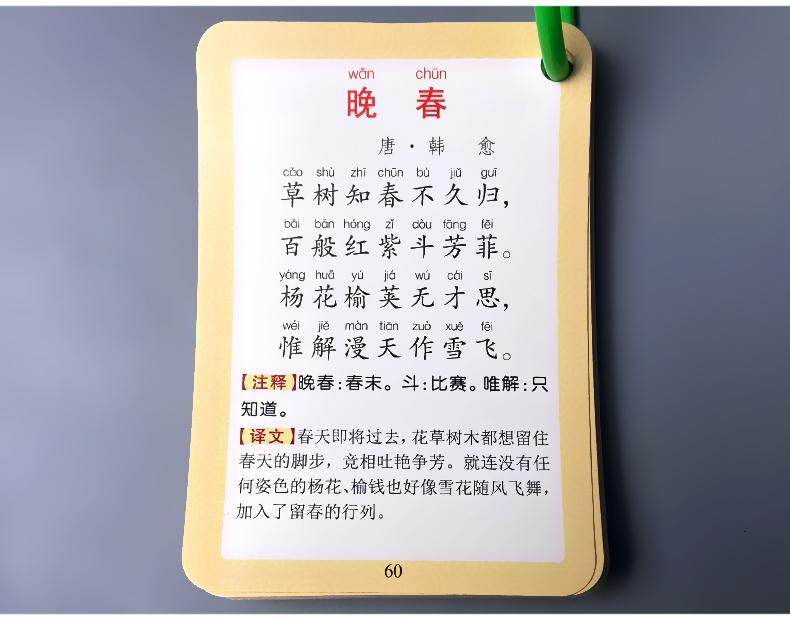 wǎn chūn
晚 春
唐·韩 愈
cǎo shù zhī chūn bù jiǔ guī
草树知春不久归，
bǎi bān hóng zǐ dòu fāng fēi
百般红紫斗芳菲。
yáng huā yú jiá wú cái sī
杨花榆荚无才思，
wéi jiě màn tiān zuò xuě fēi
惟解漫天作雪飞。
【注释】晚春：春末。斗：比赛。唯解：只
知道。
【译文】春天即将过去，花草树木都想留住
春天的脚步，竞相吐艳争芳。就连没有任
何姿色的杨花、榆钱也好像雪花随风飞舞，
加入了留春的行列。
60